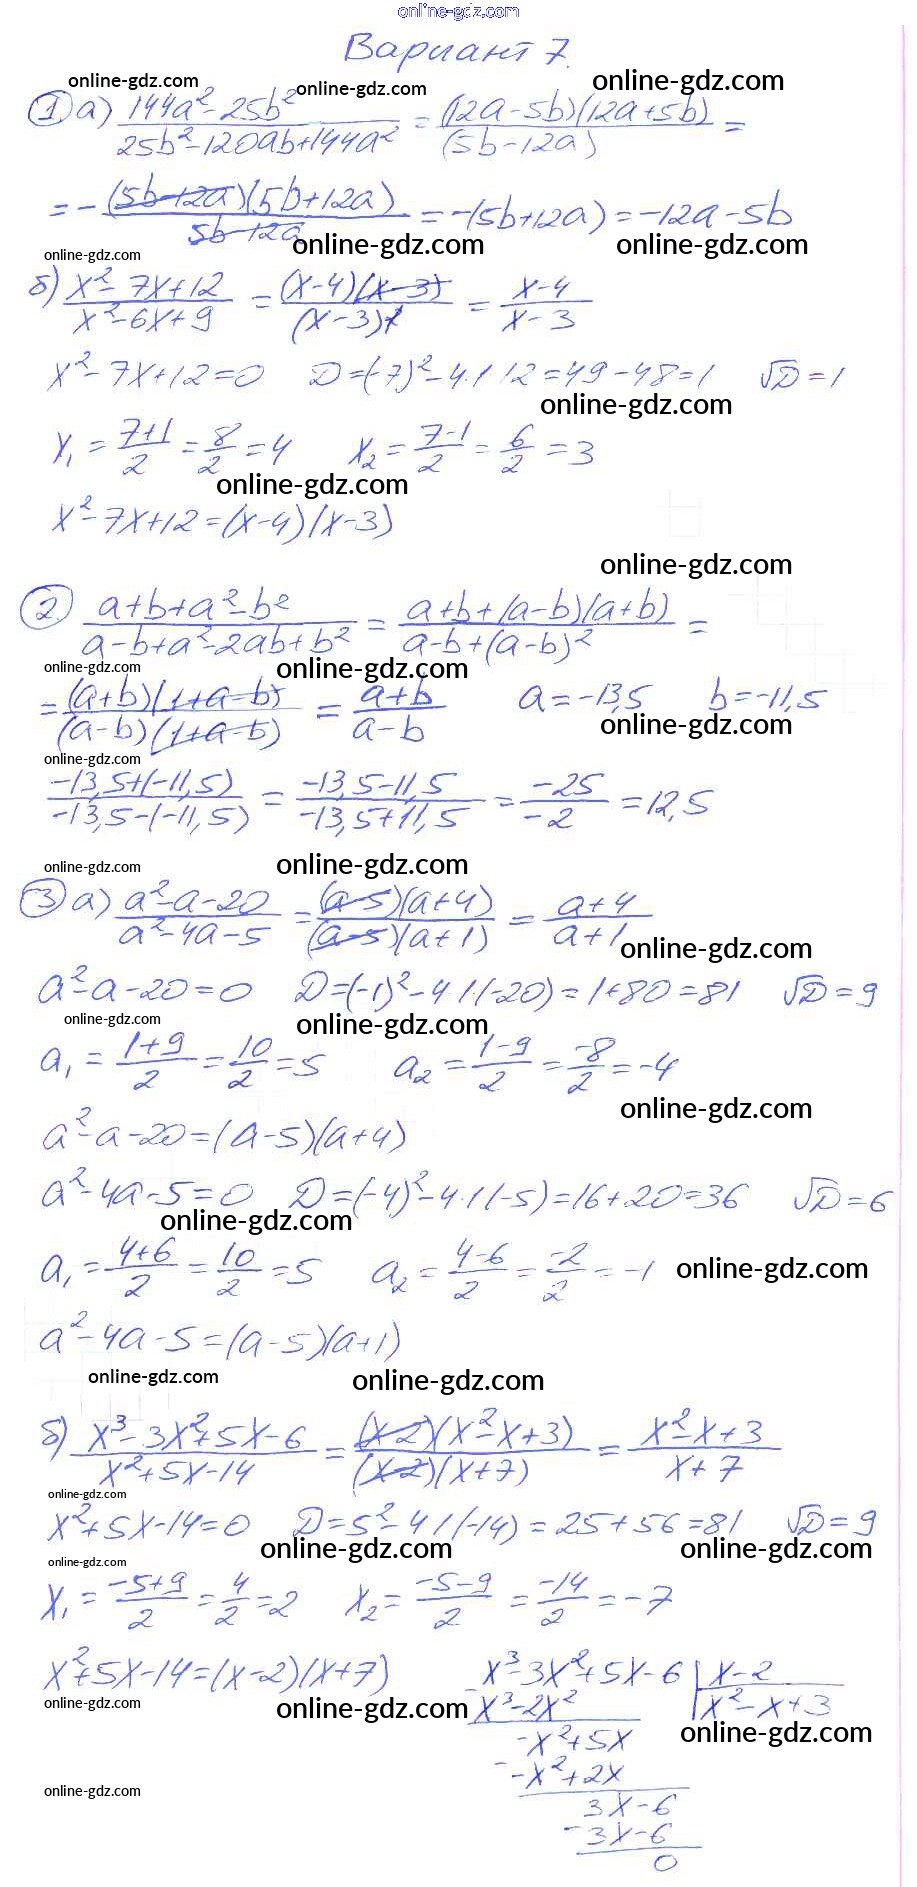 online-gdz.com
Вариант 7.
online-gdz.com online-gdz.com online-gdz.com
① а) (144a² - 25b²)/(25b² - 120ab + 144a²) = ((12a - 5b)(12a + 5b))/(5b - 12a) =
= - ((5b - 12a)(5b + 12a))/(5b - 12a) = -(5b + 12a) = -12a - 5b
online-gdz.com online-gdz.com online-gdz.com
б) (x² - 7x + 12)/(x² - 6x + 9) = ((x - 4)(x - 3))/((x - 3)²) = (x - 4)/(x - 3)
x² - 7x + 12 = 0 D = (-7)² - 4·1·12 = 49 - 48 = 1 √D = 1
online-gdz.com
x₁ = (7+1)/2 = 8/2 = 4 x₂ = (7-1)/2 = 6/2 = 3
online-gdz.com
x² - 7x + 12 = (x - 4)(x - 3)
online-gdz.com
② (a + b + a² - b²)/(a - b + a² - 2ab + b²) = (a + b + (a - b)(a + b))/(a - b + (a - b)²) =
online-gdz.com online-gdz.com
= ((a + b)(1 + a - b))/((a - b)(1 + a - b)) = (a + b)/(a - b) a = -13,5 b = -11,5
online-gdz.com
online-gdz.com
(-13,5 + (-11,5))/(-13,5 - (-11,5)) = (-13,5 - 11,5)/(-13,5 + 11,5) = (-25)/(-2) = 12,5
online-gdz.com online-gdz.com
③ а) (a² - a - 20)/(a² - 4a - 5) = ((a - 5)(a + 4))/((a - 5)(a + 1)) = (a + 4)/(a + 1)
online-gdz.com
a² - a - 20 = 0 D = (-1)² - 4·1·(-20) = 1 + 80 = 81 √D = 9
online-gdz.com online-gdz.com
a₁ = (1+9)/2 = 10/2 = 5 a₂ = (1-9)/2 = -8/2 = -4
online-gdz.com
a² - a - 20 = (a - 5)(a + 4)
a² - 4a - 5 = 0 D = (-4)² - 4·1·(-5) = 16 + 20 = 36 √D = 6
online-gdz.com
a₁ = (4+6)/2 = 10/2 = 5 a₂ = (4-6)/2 = -2/2 = -1
online-gdz.com
a² - 4a - 5 = (a - 5)(a + 1)
online-gdz.com online-gdz.com
б) (x³ - 3x² + 5x - 6)/(x² + 5x - 14) = ((x - 2)(x² - x + 3))/((x - 2)(x + 7)) = (x² - x + 3)/(x + 7)
online-gdz.com
x² + 5x - 14 = 0 D = 5² - 4·1·(-14) = 25 + 56 = 81 √D = 9
online-gdz.com online-gdz.com online-gdz.com
x₁ = (-5+9)/2 = 4/2 = 2 x₂ = (-5-9)/2 = -14/2 = -7
x² + 5x - 14 = (x - 2)(x + 7) x³ - 3x² + 5x - 6 | x - 2
online-gdz.com online-gdz.com x³ - 2x² x² - x + 3
online-gdz.com
-x² + 5x
-x² + 2x
online-gdz.com
3x - 6
3x - 6
0